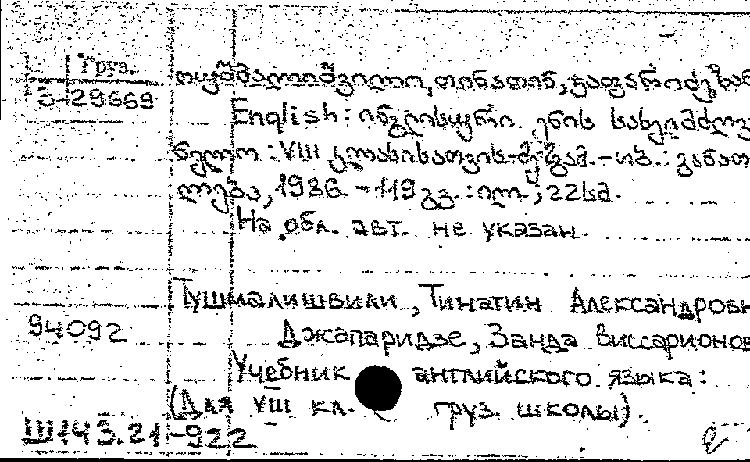 Груз.
თუშმალიშვილი, თინათინ, ჯაფარიძე, ზან
3-29669
English: ინგლისური ენის სახელმძღვ
ნელო: VIII კლასისათვის. - თბ.: განათ
ლება, 1986. - 119 გვ.: ილ; 22 სმ.
На обл. авт. не указан.
Тушмалишвили, Тинатин Александровн
94092
Джапаридзе, Занда Виссарионов
Учебник английского языка:
(Для VIII кл. груз. школы).
Ш143.21-922